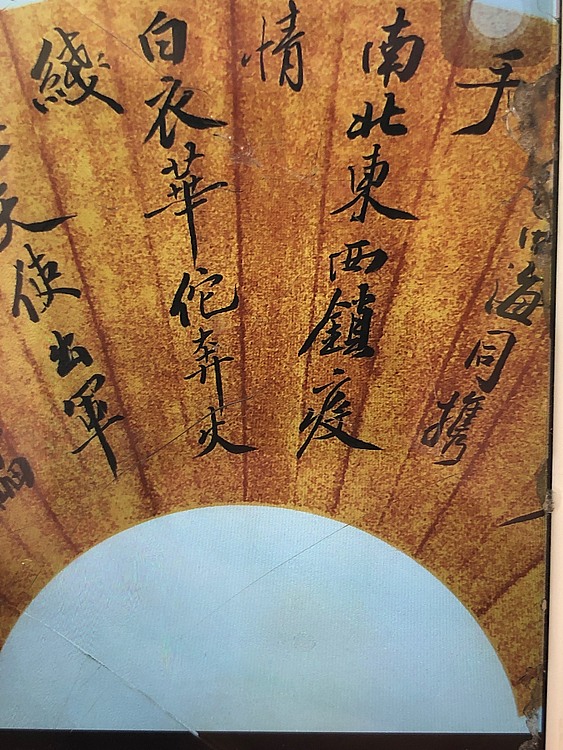 四海同携
手
南北東西鎮疫
情
白衣華佗奔火
綫
天使出軍